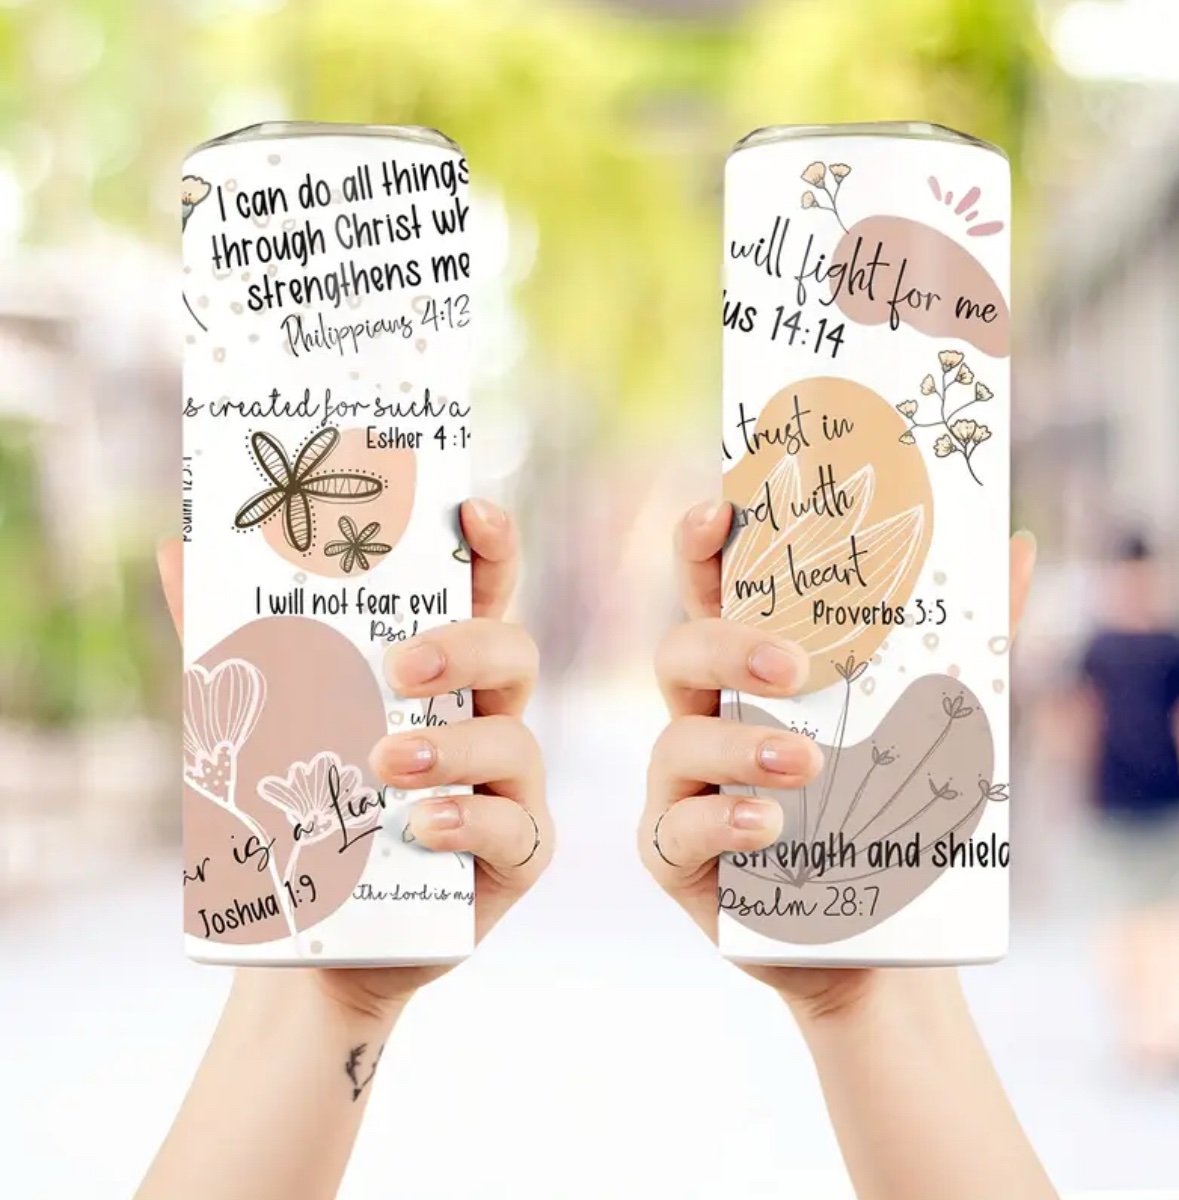 I can do all things
through Christ wh
strengthens me
Philippians 4:13
s created for such a
Esther 4:1
Psalm 125:1
I will not fear evil
Psal
who
ar is a Liar
Joshua 1:9
The Lord is my
will fight for me
us 14:14
trust in
rd with
my heart
Proverbs 3:5
strength and shield
Psalm 28:7